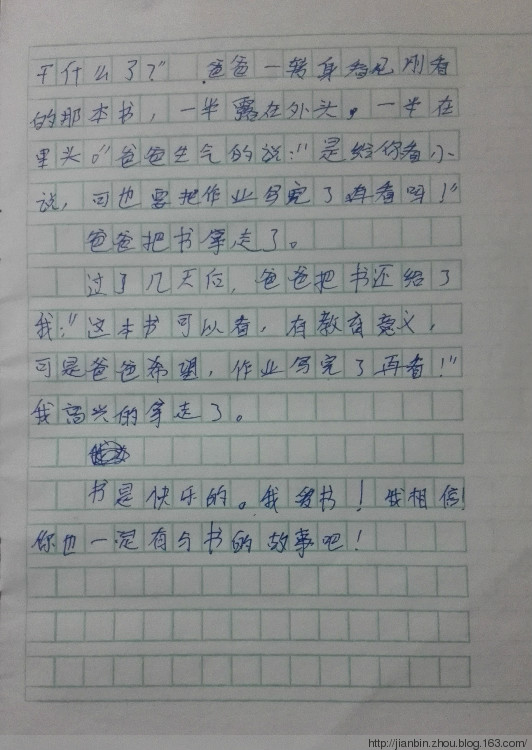 干什么了？”爸爸一转身看见刚看
的那本书，一半露在外头，一半在
里头。“爸爸生气的说：”是给你看小
说，可也要把作业写完了再看吗！”
爸爸把书拿走了。
过了几天后，爸爸把书还给了
我：“这本书可以看，有教育意义，
可是爸爸希望，作业写完了再看！”
我高兴的拿走了。
书是快乐的。我爱书！我相信
你也一定有与书的故事吧！
http://jianbin.zhou.blog.163.com/